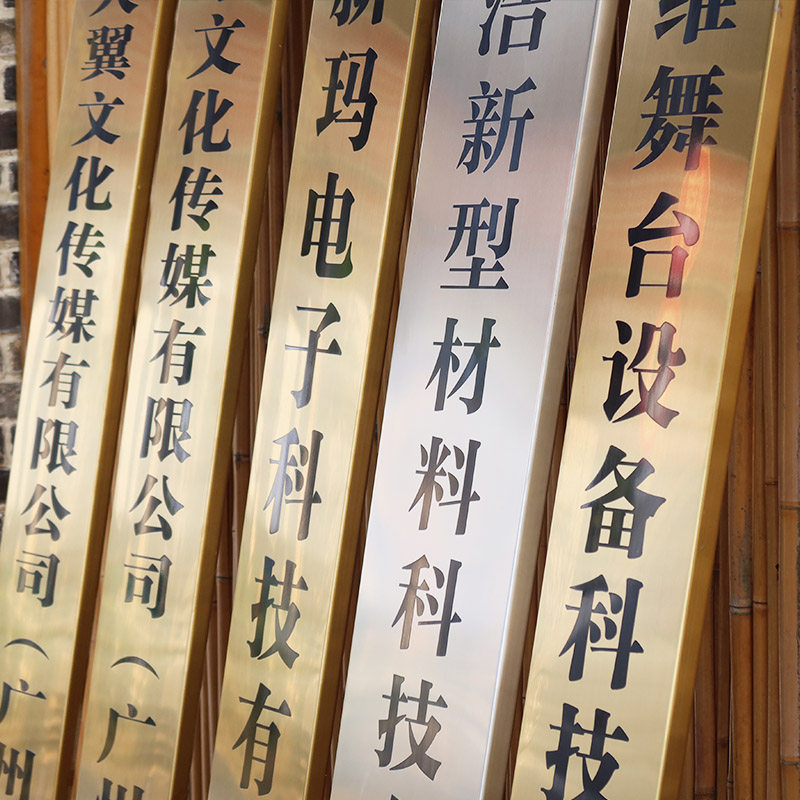 翼文化传媒有限公司（广州
文化传媒有限公司（广州
新玛电子科技有
洁新型材料科技
维舞台设备科技